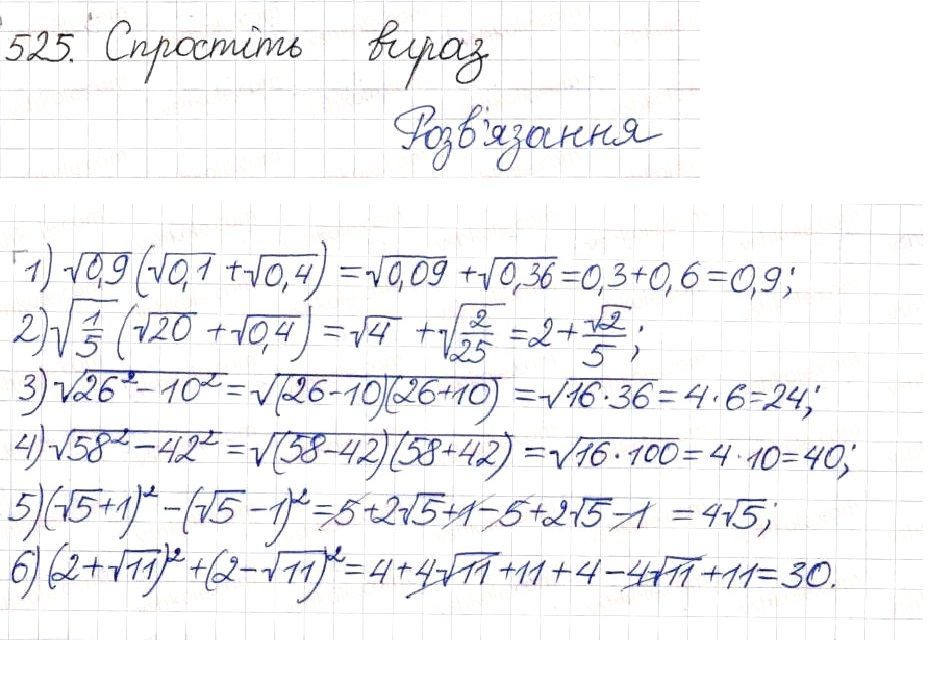 525. Спростіть вираз
Розв'язання
1) √0,9 (√0,1 + √0,4) = √0,09 + √0,36 = 0,3 + 0,6 = 0,9;
2) √(1/5) (√20 + √0,4) = √4 + √(2/25) = 2 + √2/5;
3) √(26² - 10²) = √((26-10)(26+10)) = √(16·36) = 4·6 = 24;
4) √(58² - 42²) = √((58-42)(58+42)) = √(16·100) = 4·10 = 40;
5) (√5 + 1)² - (√5 - 1)² = 5 + 2√5 + 1 - 5 + 2√5 - 1 = 4√5;
6) (2 + √11)² + (2 - √11)² = 4 + 4√11 + 11 + 4 - 4√11 + 11 = 30.